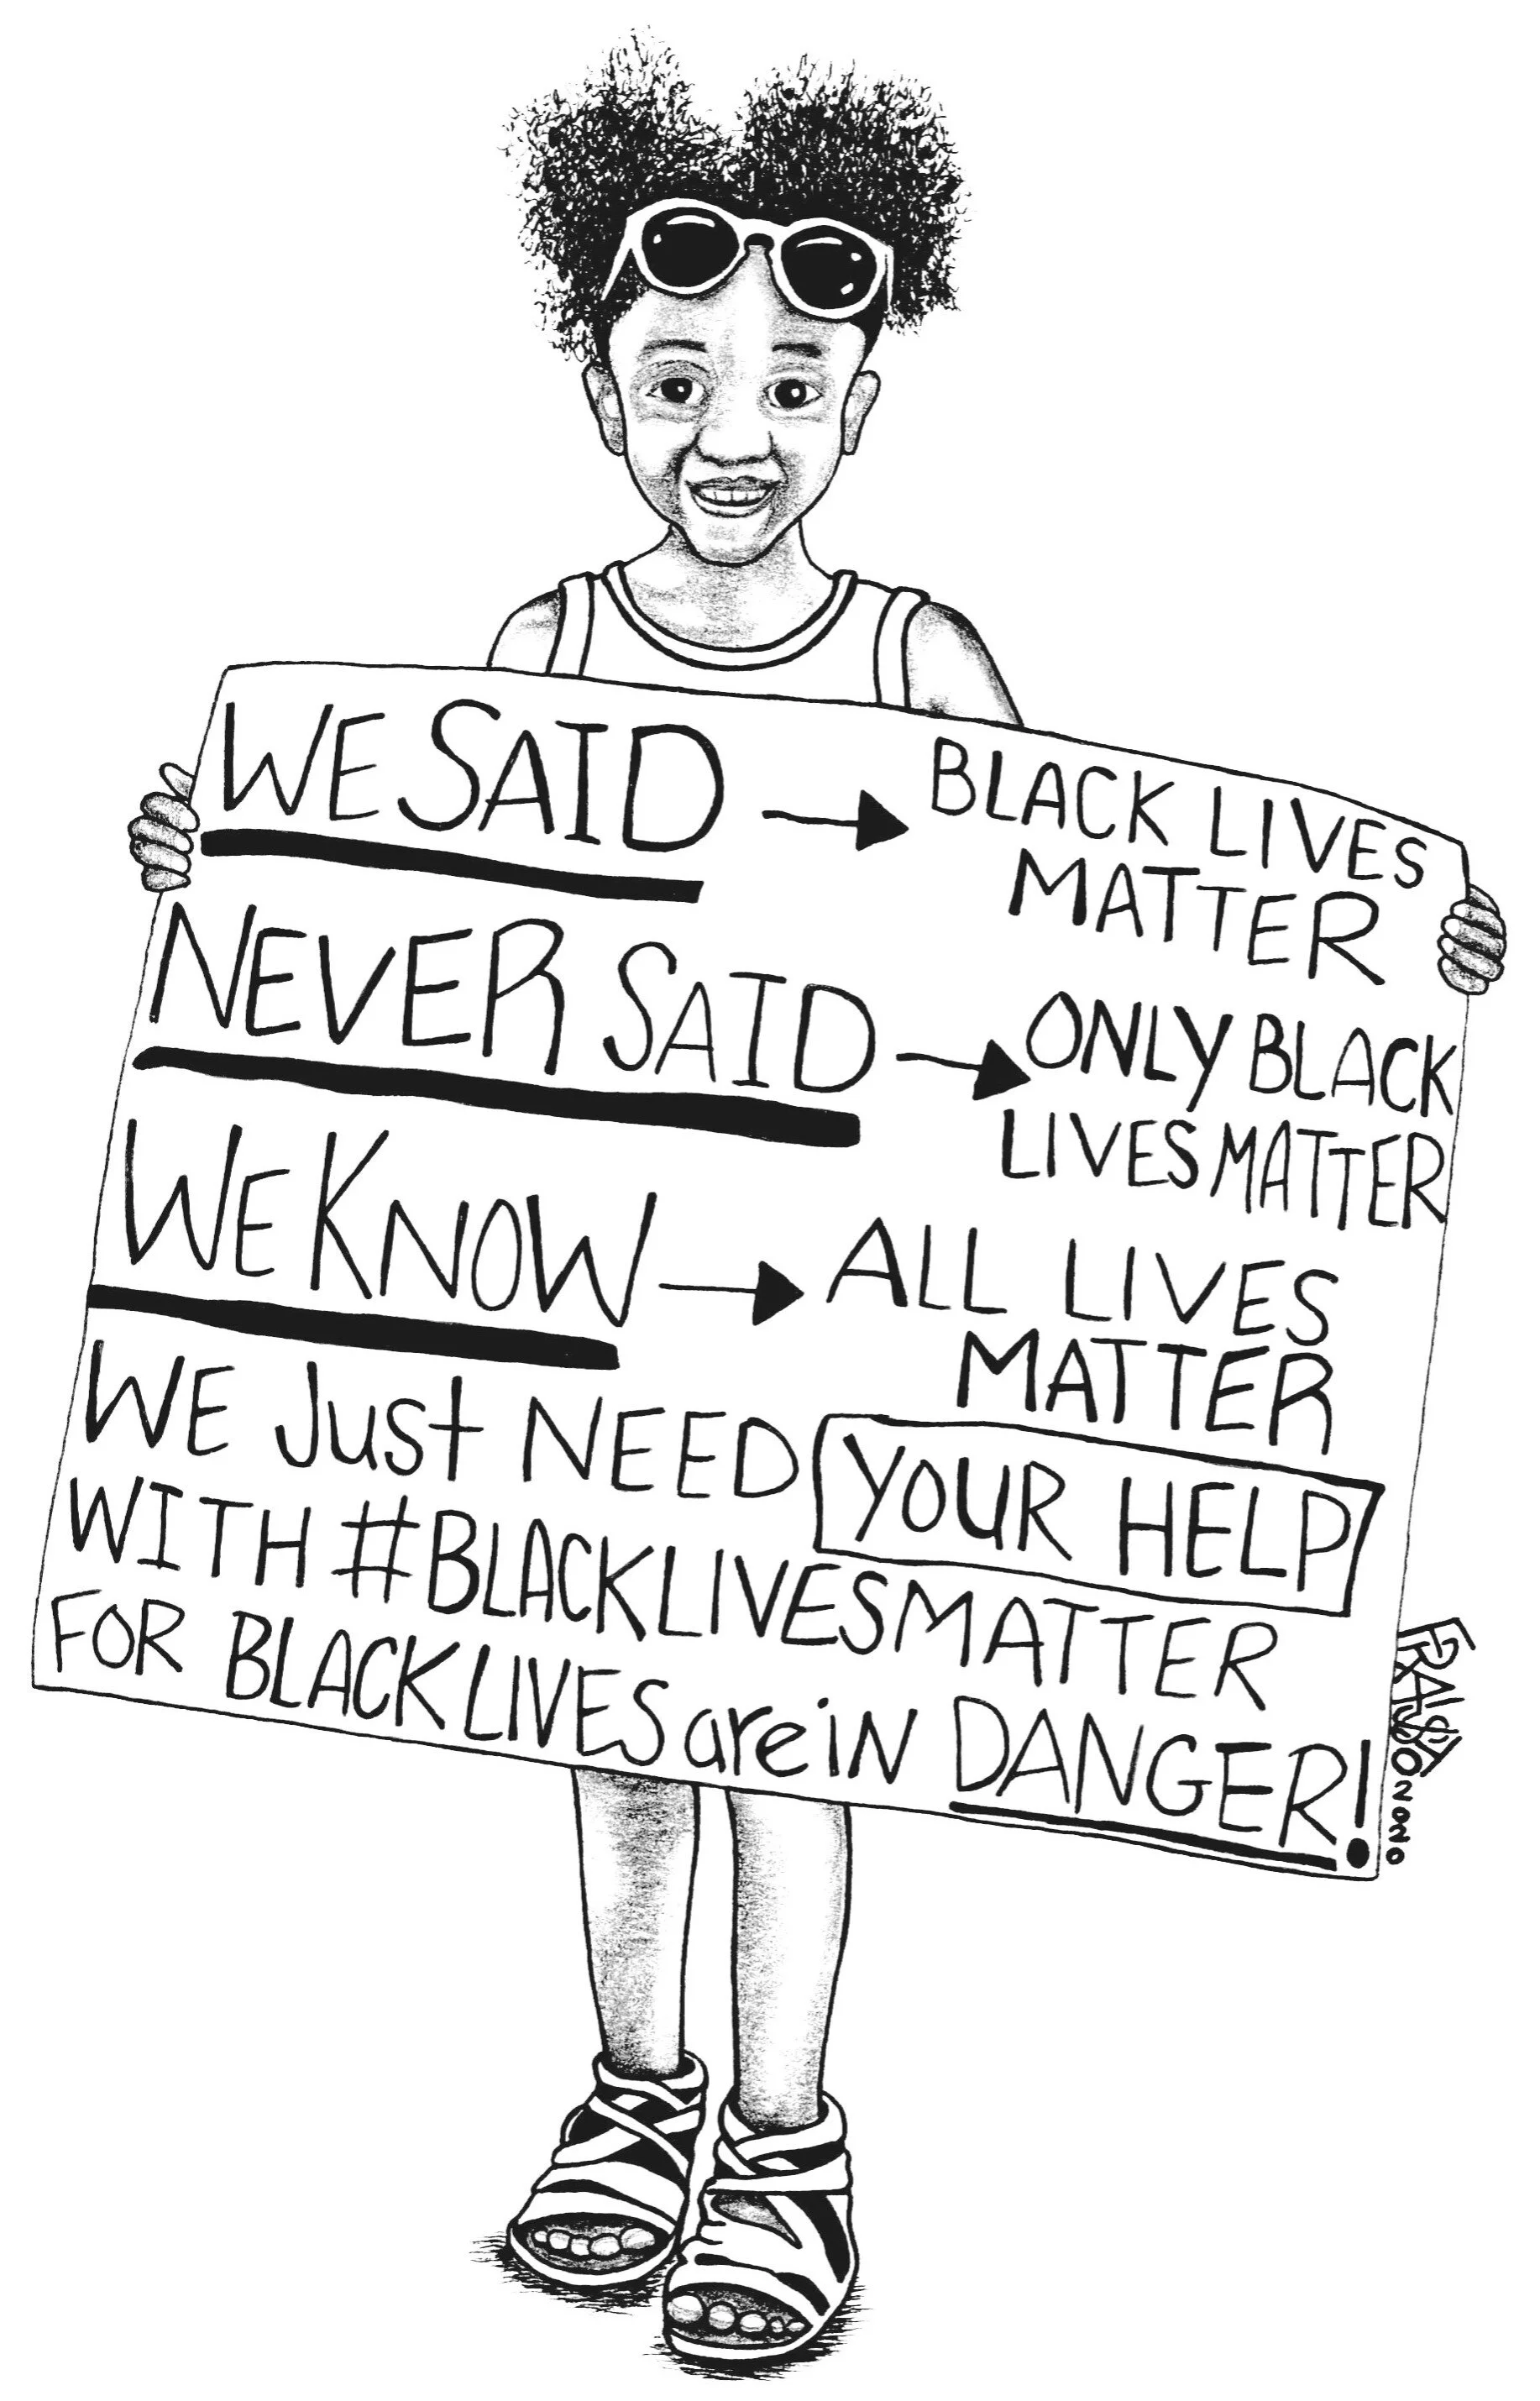 WE SAID → BLACK LIVES
MATTER
NEVER SAID → ONLY BLACK
LIVES MATTER
WE KNOW → ALL LIVES
MATTER
WE Just NEED YOUR HELP
WITH #BLACKLIVESMATTER
FOR BLACK LIVES are iN DANGER!
2020